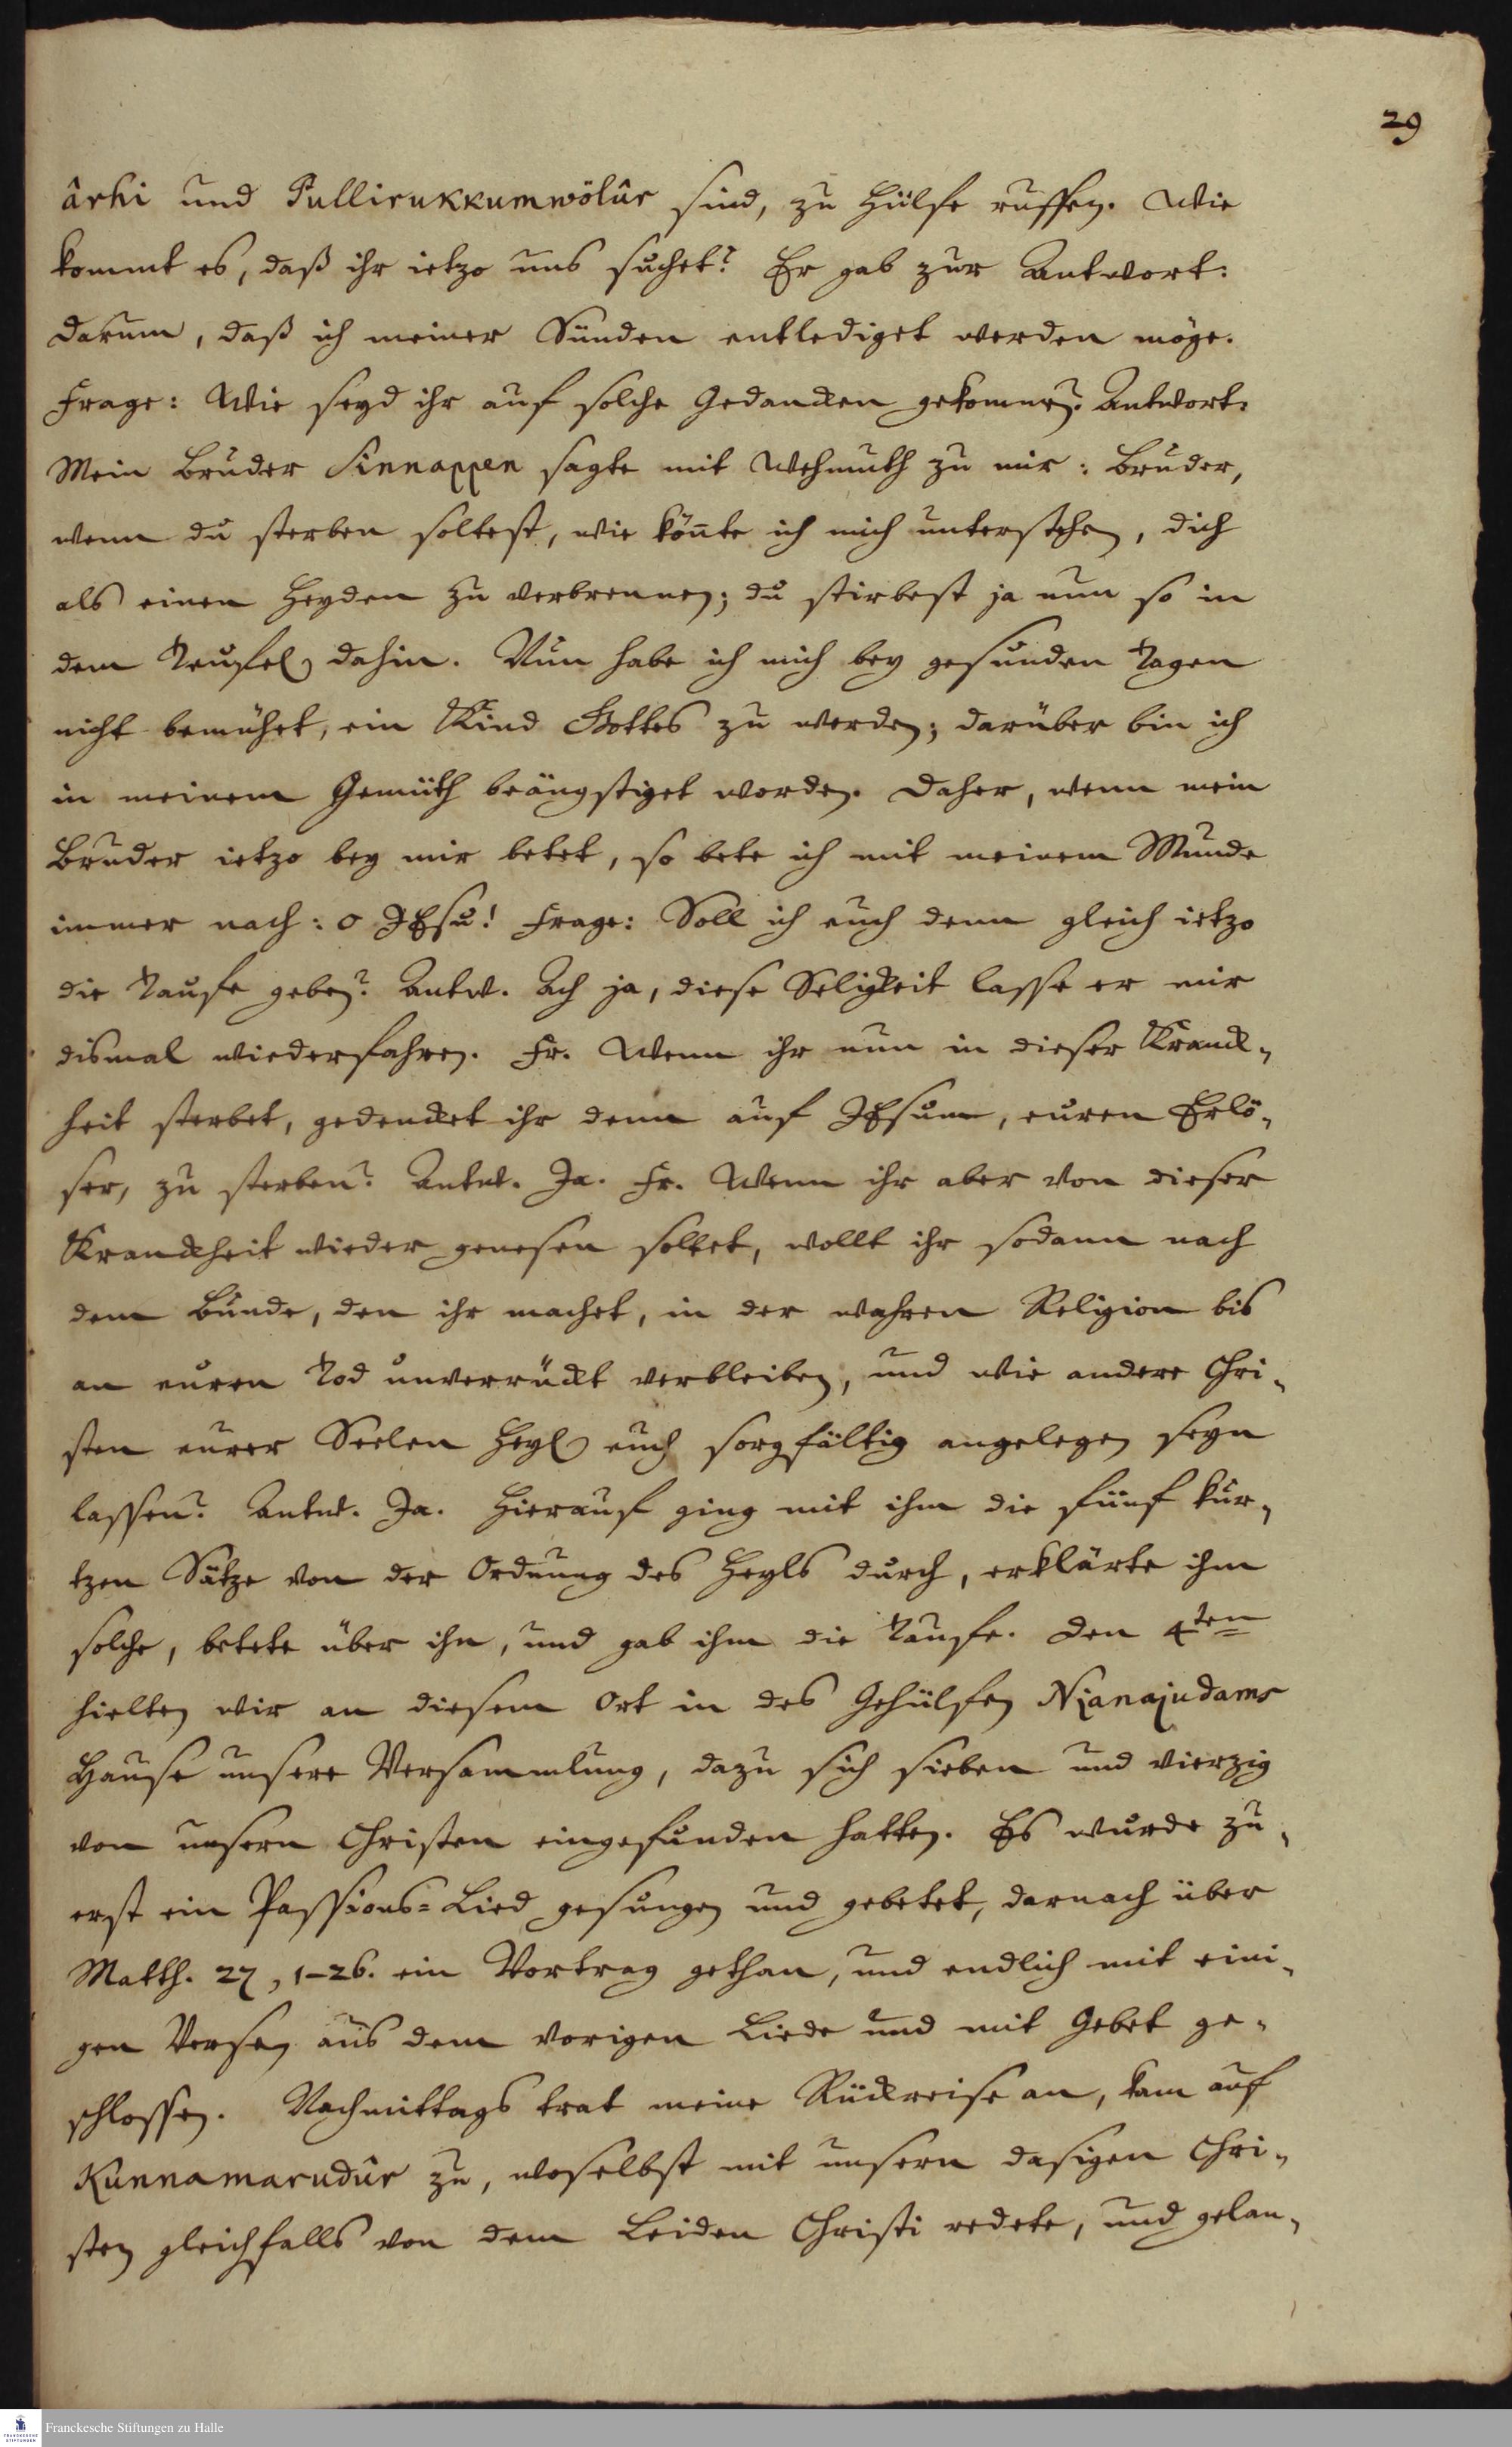 29
ârhi und Pullirukkumwölûr sind, zu Hülfe ruffen. Wie
kommt es, daß ihr ietzo uns suchet? Er gab zur Antwort:
darum, daß ich meiner Sünden entlediget werden möge.
Frage: Wie seyd ihr auf solche Gedancken gekommen? Antwort:
Mein Bruder Sinnappen sagte mit Wehmuth zu mir: Bruder,
wenn du sterben soltest, wie kön̄te ich mich unterstehen, dich
als einen Heyden zu verbrennen; du stirbest ja nun so in
dem Teufel dahin. Nun habe ich mich bey gesunden Tagen
nicht bemühet, ein Kind Gottes zu werden; darüber bin ich
in meinem Gemüth beängstiget worden. Daher, wenn mein
Bruder ietzo bey mir betet, so bete ich mit meinem Munde
immer nach: o JEsu! Frage: Soll ich euch denn gleich ietzo
die Taufe geben? Antw. Ach ja, diese Seligkeit lasse er mir
dismal wiederfahren. Fr. Wenn ihr nun in dieser Kranck-
heit sterbet, gedencket ihr denn auf JEsum, euren Erlö-
ser, zu sterben? Antw. Ja. Fr. Wenn ihr aber von dieser
Kranckheit wieder genesen soltet, wollt ihr sodann nach
dem Bunde, den ihr machet, in der wahren Religion bis
an euren Tod unverrückt verbleiben, und wie andere Chri-
sten eurer Seelen Heyl euch sorgfältig angelegen seyn
lassen? Antw. Ja. Hierauf ging mit ihm die fünf kur-
tzen Sätze von der Ordnung des Heyls durch, erklärte ihm
solche, betete über ihn, und gab ihm die Taufe. Den 4ten
hielten wir an diesem Ort in des Gehülfen Njanajudams
Hause unsere Versammlung, dazu sich sieben und vierzig
von unsern Christen eingefunden hatten. Es wurde zu-
erst ein Passions-Lied gesungen und gebetet, darnach über
Matth. 27, 1-26. ein Vortrag gethan, und endlich mit eini-
gen Versen aus dem vorigen Liede und mit Gebet ge-
schlossen. Nachmittags trat meine Rückreise an, kam auf
Kunnamarudûr zu, woselbst mit unsern dasigen Chri-
sten gleichfalls von dem Leiden Christi redete, und gelan-
Franckesche Stiftungen zu Halle